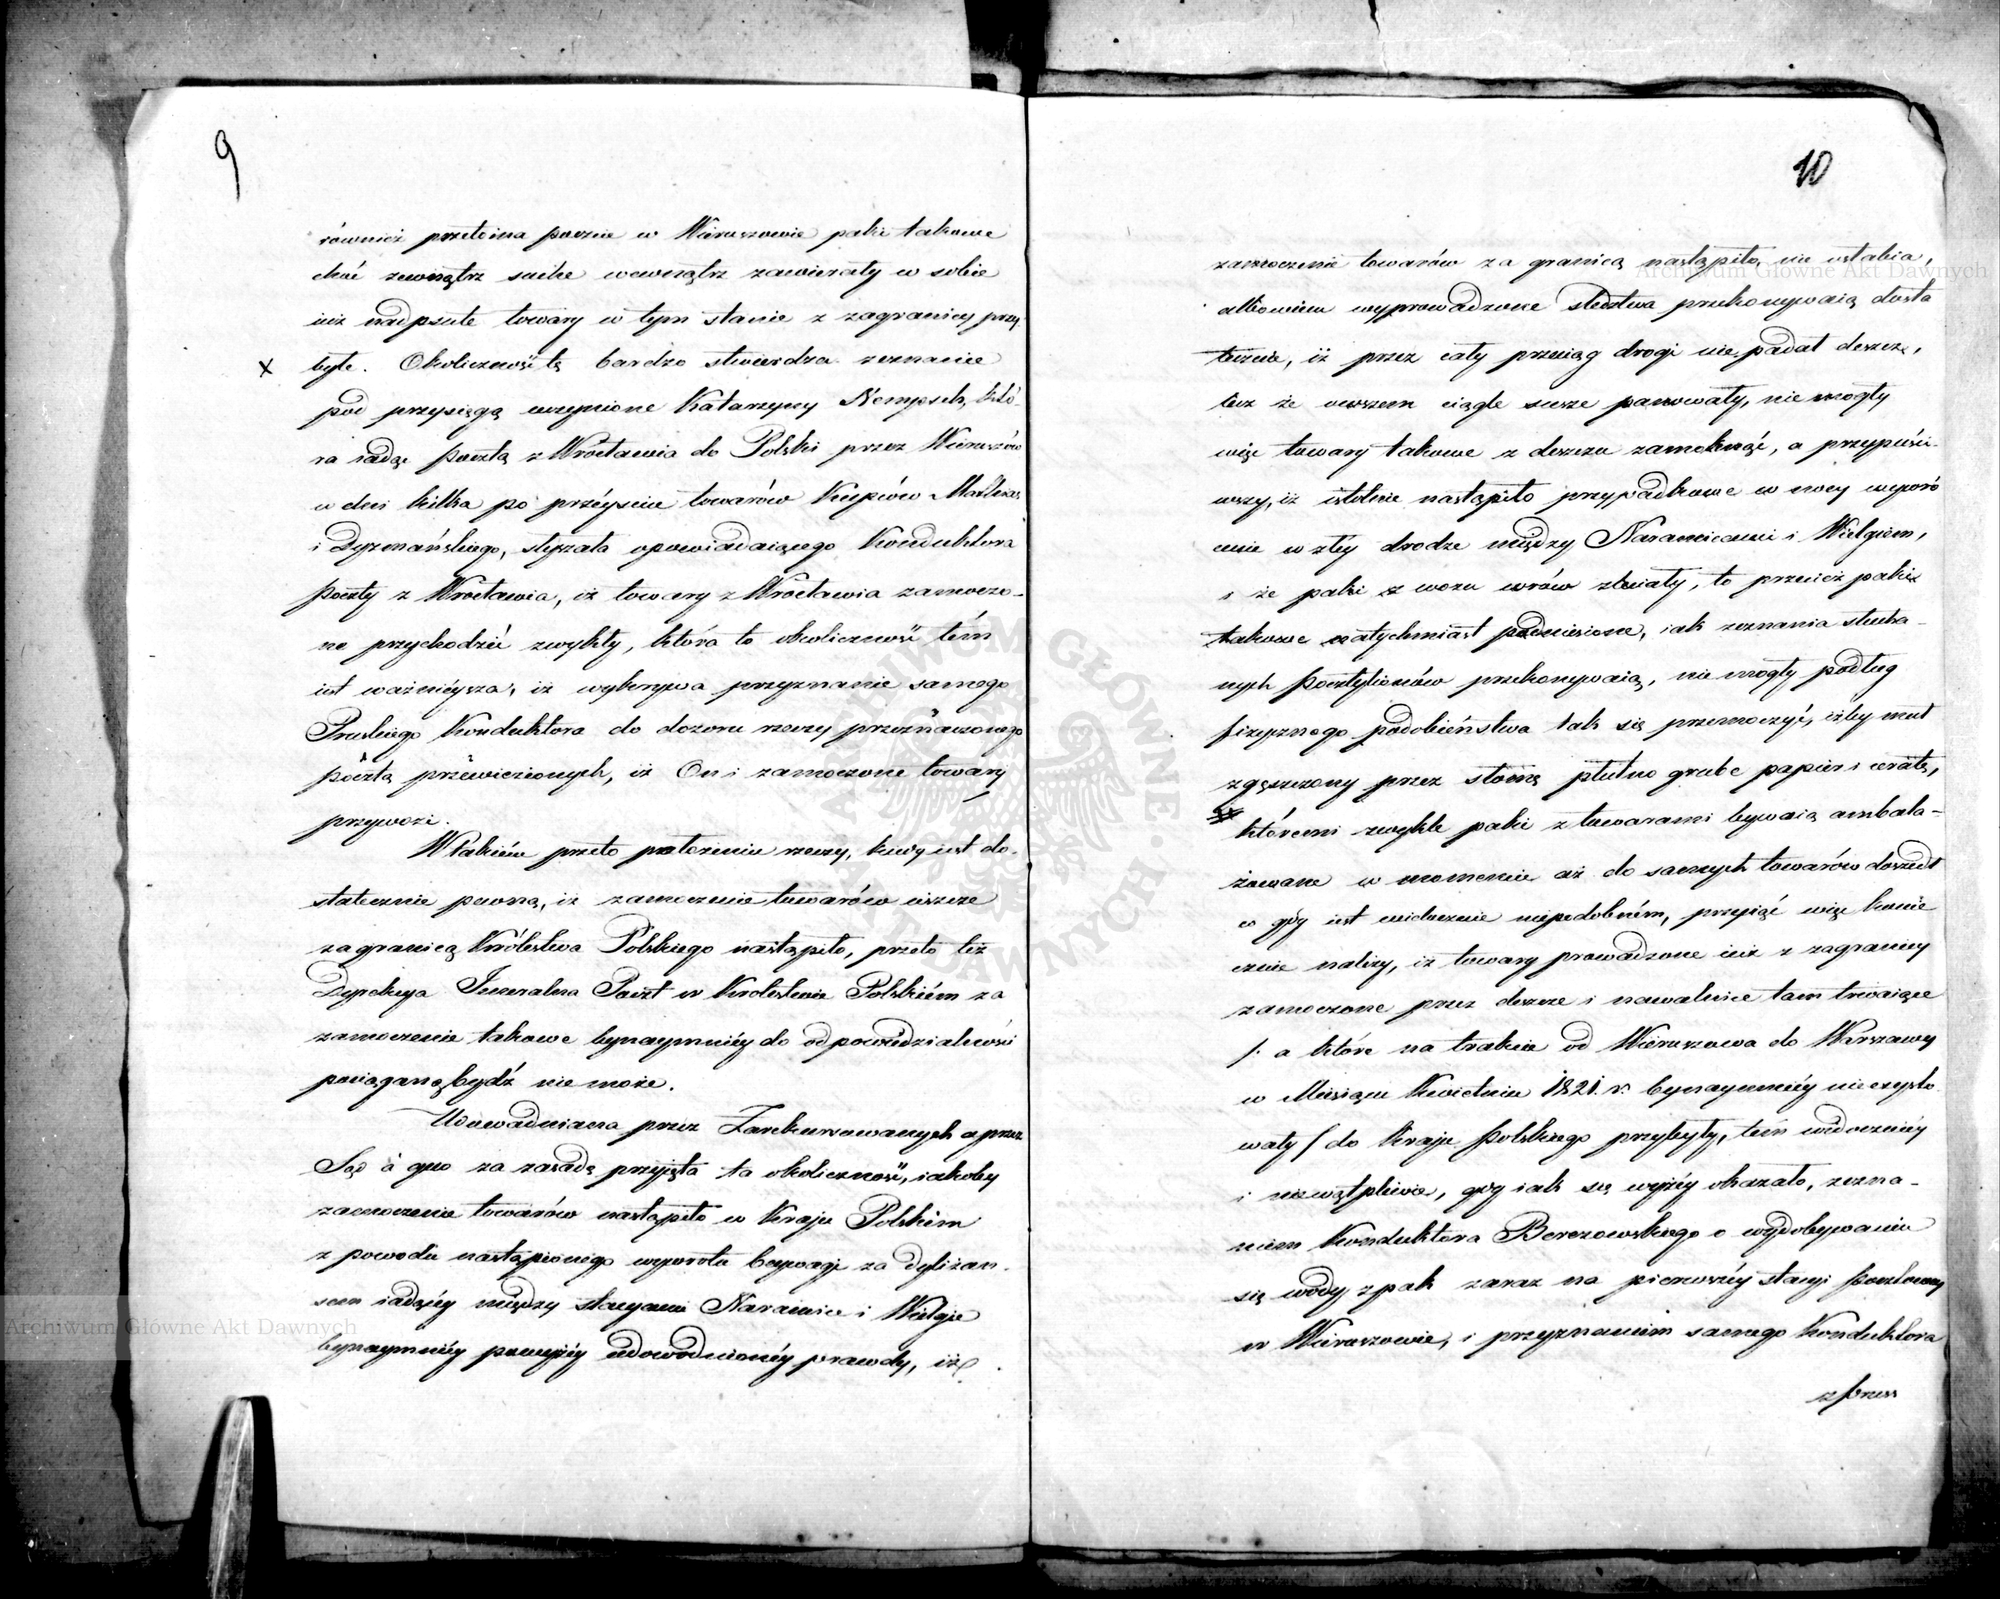 9
również przeto ina poczcie w Wieruszowie paki takowe
choć zewnątrz suche wewnątrz zawierały w sobie
już nadpsute towary w tym stanie z zagranicy przy
x byłe. Okoliczność tę bardzo stwierdza zeznanie
pod przysięgą uczynione Katarzyny Nempsch, któ-
ra iadąc pocztą z Wrocławia do Polski przez Wieruszów
w dni kilka po przéyściu towarów Kupców
i Dyzmańskiego, słyszała opowiadaiącego Konduktora
poczty z Wrocławia, iż towary z Wrocławia zamoczo-
ne przychodzić zwykły, która to okoliczność tém
iest ważnieysza, iż wykrywa przyznanie samego
Pruskiego Konduktora do dozoru rzeczy przeznaczonego
pocztą przewiezionych, iż On i zamoczone towary
przywozi.
W takiém przeto położeniu rzeczy, kiedy iest do-
statecznie pewną, iż zamoczenie towarów ieszcze
za granicą Królestwa Polskiego nastąpiło, przeto też
Dyrekcya Jeneralna Poczt w Królestwie Polskiém za
zamoczenie takowe bynaymniéy do odpowiedzialności
pociąganą bydź nie może.
Udowadniana przez Zarekursowanych a przez
Sąd à quo za zasadę przyjęta ta okoliczność, iakoby
zamoczenie towarów nastąpiło w Kraju Polskim
z powodu nastąpionego wywrotu brywagi za dyliżan-
sem iadącéy między stacyami Naramice i Wielgie
bynaymniéy powyżéy udowodnionéy prawdy, iż
10
zamoczenie towarów za granicą nastąpiło, nie osłabia,
albowiem wyprowadzone śledztwa przekonywaią dosta
tecznie, iż przez cały przeciąg drogi nie padał deszcz,
lecz że owszem ciągłe susze panowały, nie mogły
więc towary takowe z deszczu zamoknąć, a przypuści-
wszy, iż istotnie nastąpiło przypadkowe w nocy wywró
cenie w złéy drodze między Naramicami i Wielgiem,
i że paki z wozu w rów zleciały, to przecież paki
takowe natychmiast podniesione, iak zeznania słucha-
nych Pocztylionów przekonywaią, nie mogły podług
fizycznego podobieństwa tak się przemoczyć, iżby muł
zgęszczony przez słomę płótno grube papier i ceratę,
któremi zwykle paki z towarami bywaią ambala-
żowane w momencie aż do samych towarów doszedł
co gdy iest widocznie niepodobném, przyiąć więc konie
cznie należy, iż towary prowadzone już z zagranicy
zamoczone przez deszcze i nawałnice tam trwaiące
/: a które na trakcie od Wieruszowa do Warszawy
w Miesiącu Kwietniu 1821. r. bynaymniéy nie
wały / do Kraju Polskiego przybyły, tém widoczniéy
i niewątpliwie, gdy iak się wyżéy okazało, zezna-
niem Konduktora Berezowskiego o wydobywaniu
się wody z pak zaraz na pierwszéy stacyi Pocztowey
w Wieruszowie, i przyznaniem samego Konduktora
z Pruss
Archiwum Główne Akt Dawnych
Archiwum Główne Akt Dawnych
ARCHIWUM GŁÓWNE AKT DAWNYCH